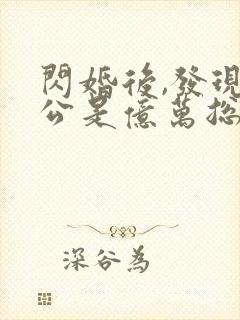 閃婚後,發現
公是億萬總
深谷為